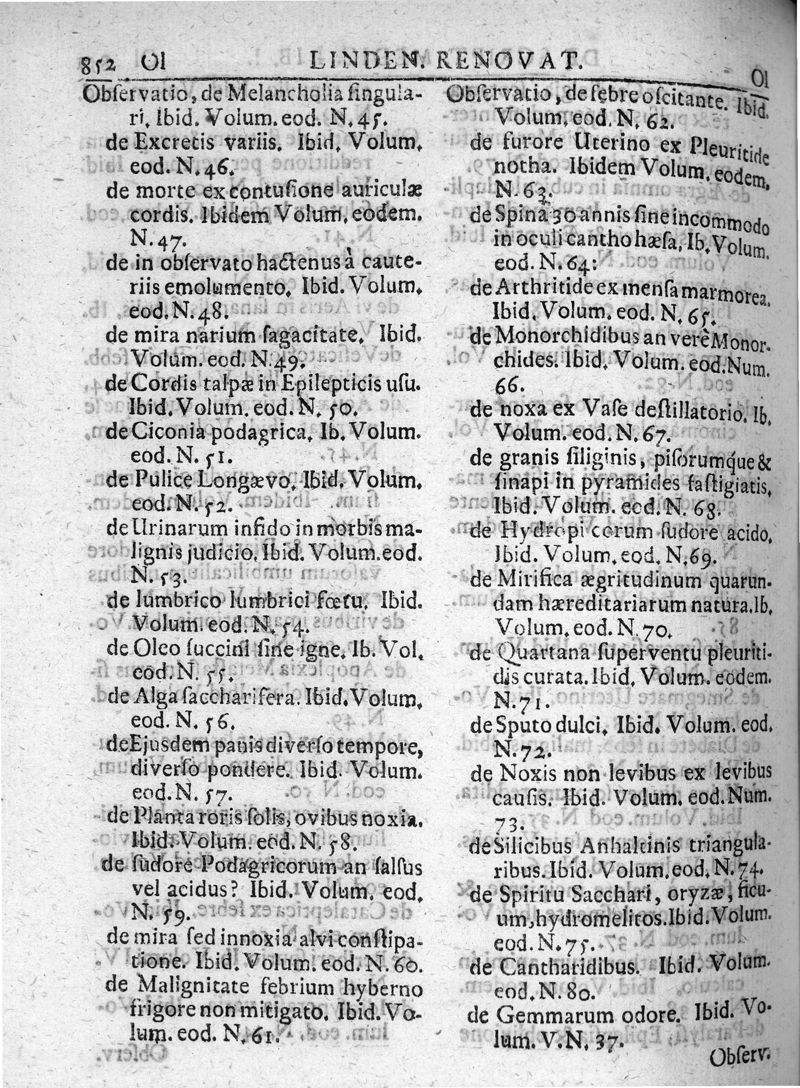 852 Ol LINDEN. RENOVAT. Ol
Obſervatio, de Melancholia ſingula-
ri, Ibid. Volum. eod. N. 45.
de Excretis variis. Ibid. Volum.
eod. N. 46.
de morte ex contuſione auriculæ
cordis. Ibidem Volum. eodem.
N. 47.
de in obſervato hactenus à caute-
riis emolumento. Ibid. Volum.
eod. N. 48.
de mira narium ſagacitate. Ibid.
Volum. eod. N. 49.
de Cordis talpæ in Epilepticis uſu.
Ibid. Volum. eod. N. 50.
de Ciconia podagrica. Ib. Volum.
eod. N. 51.
de Pulice Longævo. Ibid. Volum.
eod. N. 52.
de Urinarum infido in morbis ma-
lignis judicio. Ibid. Volum. eod.
N. 53.
de lumbrico lumbrici fœtu. Ibid.
Volum. eod. N. 54.
de Oleo ſuccini ſine igne. Ib. Vol.
eod. N. 55.
de Alga ſaccharifera. Ibid. Volum.
eod. N. 56.
de Ejusdem panis diverſo tempore,
diverſo pondere. Ibid. Volum.
eod. N. 57.
de Planta roris ſolis, ovibus noxia.
Ibid. Volum. eod. N. 58.
de ſudore Podagricorum an ſalſus
vel acidus? Ibid. Volum. eod.
N. 59.
de mira ſed innoxia alvi conſtipa-
tione. Ibid. Volum. eod. N. 60.
de Malignitate febrium hyberno
frigore non mitigato. Ibid. Vo-
lum. eod. N. 61.
Obſervatio, de febre oſcitante. Ibid.
Volum. eod. N. 62.
de furore Uterino ex Pleuritide
notha. Ibidem Volum. eodem.
N. 63.
de Spina 30 annis ſine incommodo
in oculi cantho hæſa. Ib. Volum.
eod. N. 64:
de Arthritide ex menſa marmorea.
Ibid. Volum. eod. N. 65.
de Monorchidibus an verè Monor-
chides. Ibid. Volum. eod. Num.
66.
de noxa ex Vaſe deſtillatorio. Ib.
Volum. eod. N. 67.
de granis ſiliginis, piſorumque &
ſinapi in pyramides faſtigiatis.
Ibid. Volum. eod. N. 68.
de Hydropicorum ſudore acido.
Ibid. Volum. eod. N. 69.
de Mirifica ægritudinum quarun-
dam hæreditariarum natura. Ib.
Volum. eod. N. 70.
de Quartana ſuperventu pleuriti-
dis curata. Ibid. Volum. eodem.
N. 71.
de Sputo dulci. Ibid. Volum. eod.
N. 72.
de Noxis non levibus ex levibus
cauſis. Ibid. Volum. eod. Num.
73.
de Silicibus Anhaltinis triangula-
ribus. Ibid. Volum. eod. N. 74.
de Spiritu Sacchari, oryzæ, ficu-
um, hydromelitos. Ibid. Volum.
eod. N. 75.
de Cantharidibus. Ibid. Volum.
eod. N. 80.
de Gemmarum odore. Ibid. Vo-
lum. V. N. 37.
Obſerv.